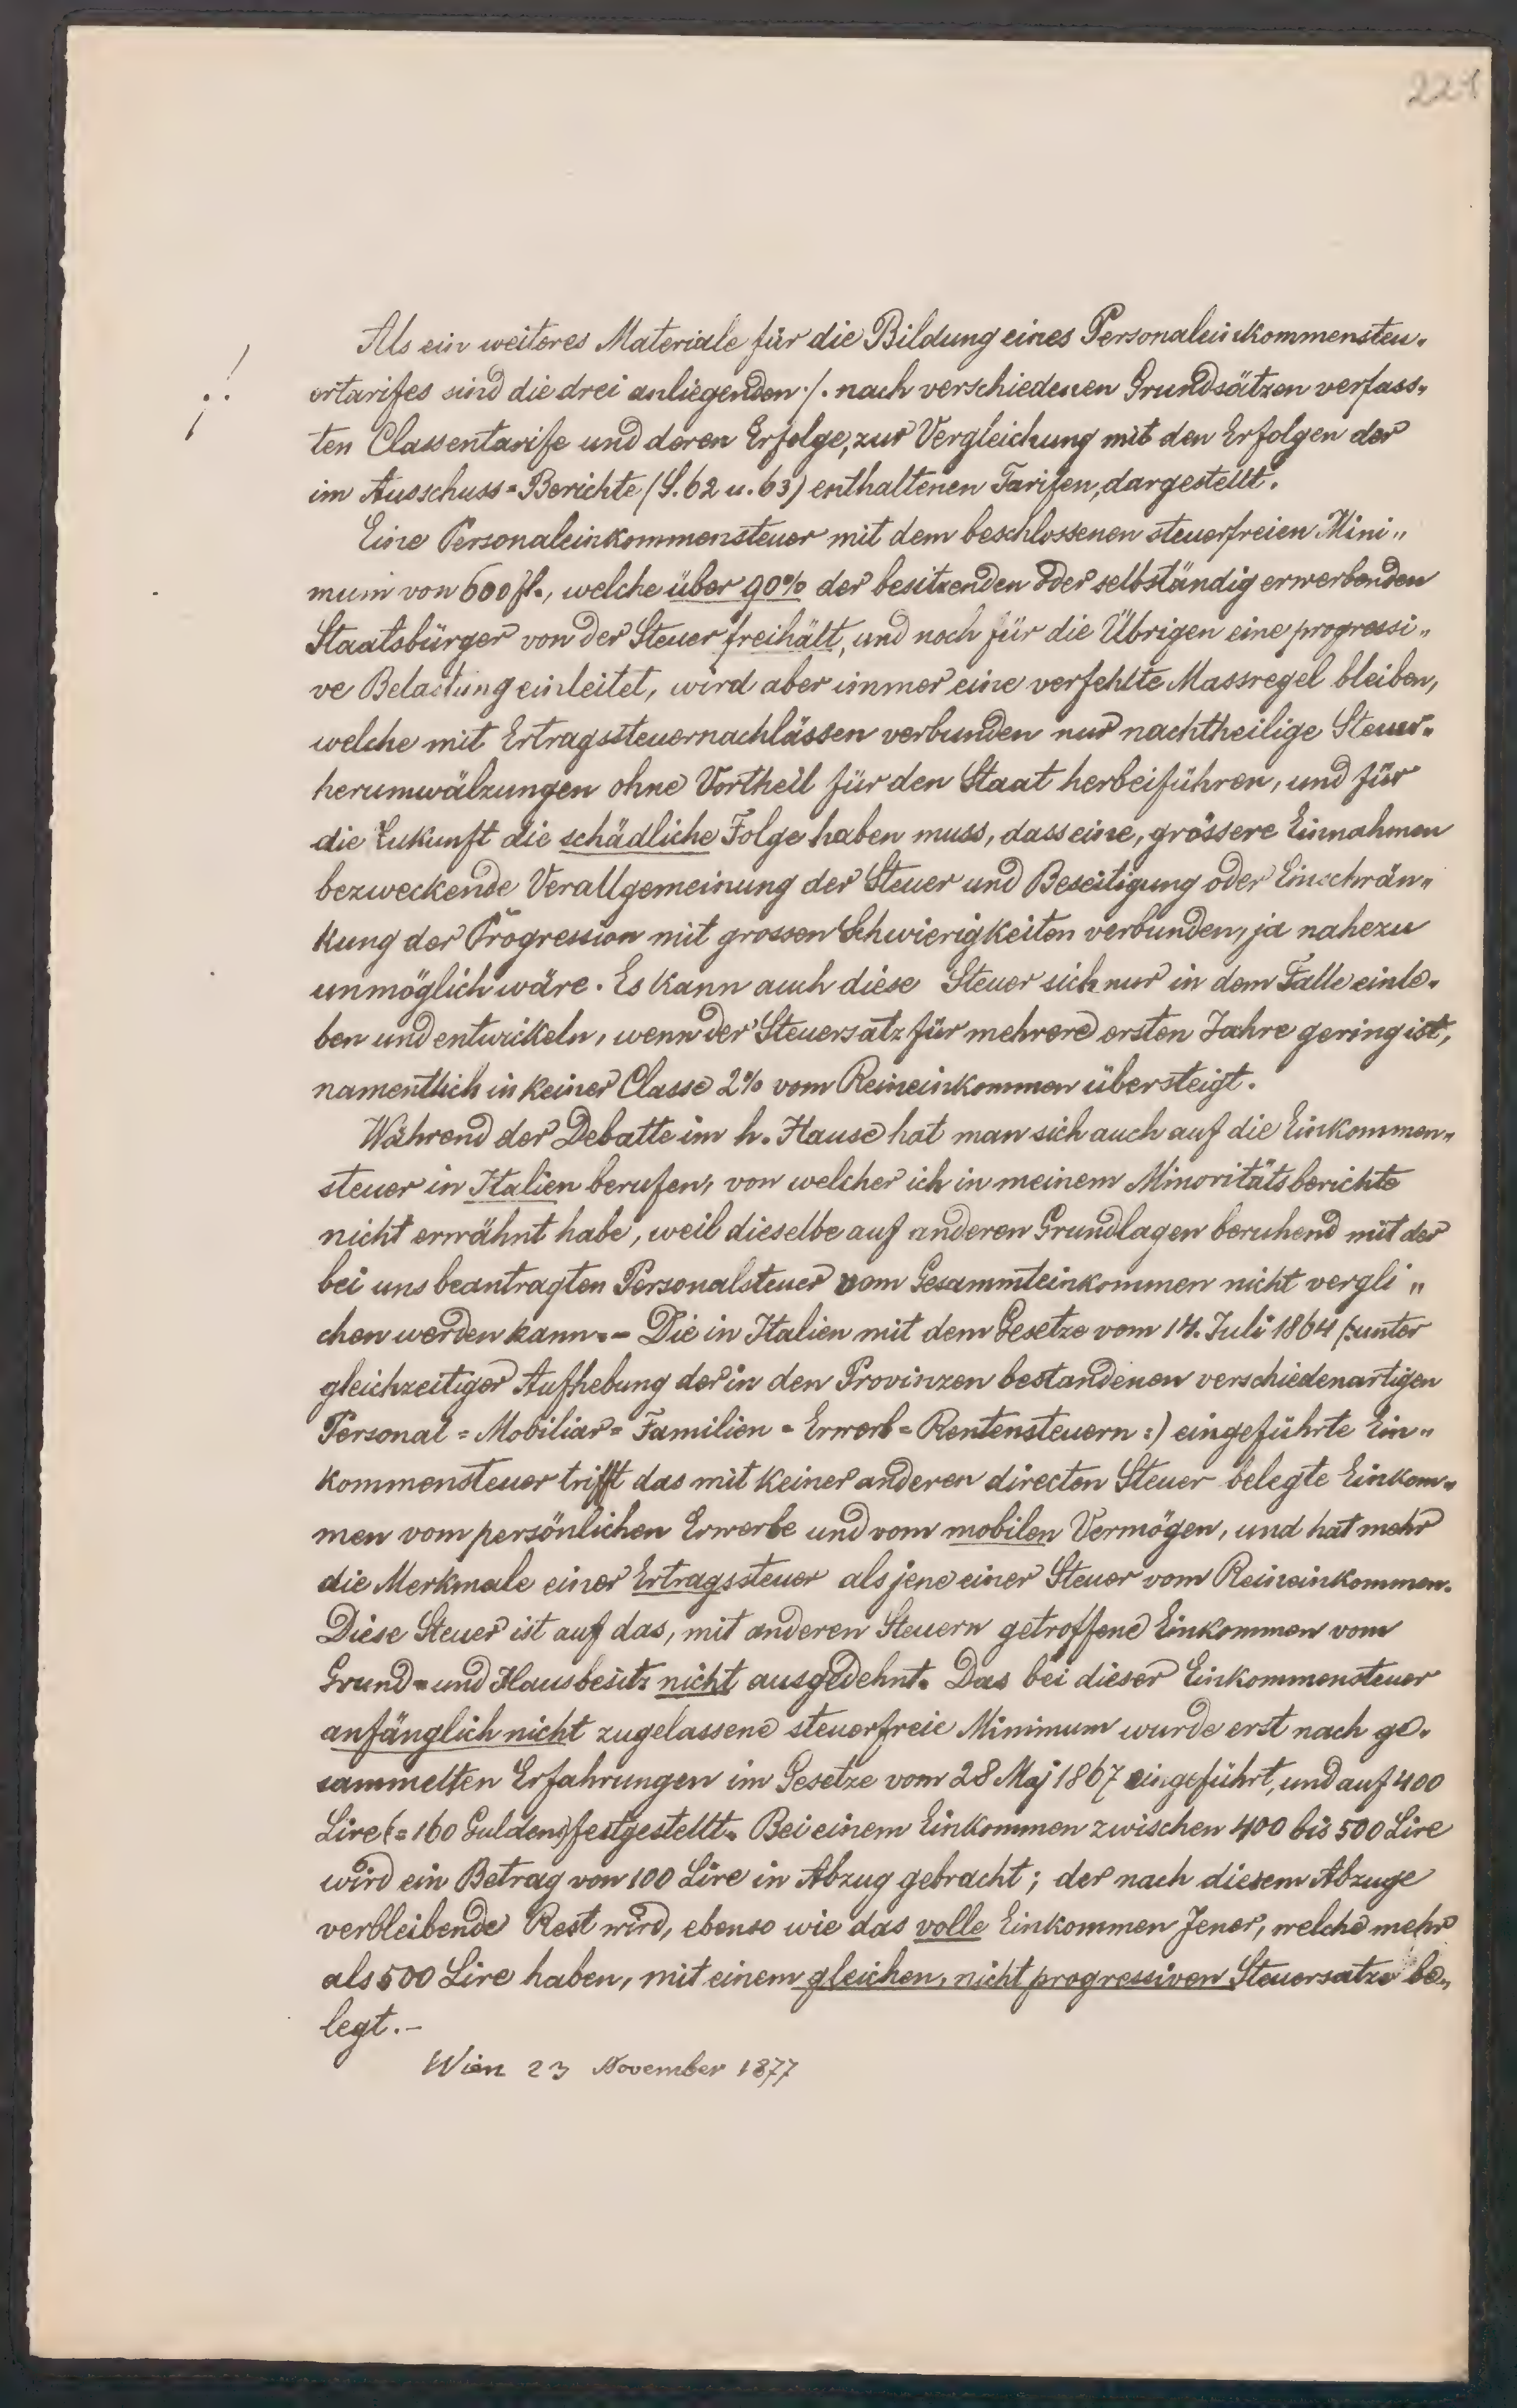 221
Als ein weiteres Materiale für die Bildung eines Personaleinkommensteu-
ertarifes sind die drei anliegenden ·/. nach verschiedenen Grundsätzen verfass-
ten Classentarife und deren Erfolge, zur Vergleichung mit den Erfolgen der
im Ausschuss=Berichte (S. 62 u. 63) enthaltenen Tarifen, dargestellt.
Eine Personaleinkommensteuer mit dem beschlossenen steuerfreien Mini„
mum von 600 fl., welche über 90% der besitzenden oder selbständig erwerbenden
Staatsbürger von der Steuer freihält, und noch für die Übrigen eine progressi„
ve Belastung einleitet, wird aber immer eine verfehlte Massregel bleiben,
welche mit Ertragssteuernachlässen verbunden nur nachtheilige Steuer-
herumwälzungen ohne Vortheil für den Staat herbeiführen, und für
die Zukunft die schädliche Folge haben muss, dass eine, grössere Einnahmen
bezweckende Verallgemeinung der Steuer und Beseitigung oder Einschrän„
kung der Progression mit grossen Schwierigkeiten verbunden, ja nahezu
unmöglich wäre. Es kann auch diese Steuer sich nur in dem Falle einle-
ben und entwickeln, wenn der Steuersatz für mehrere ersten Jahre gering ist,
namentlich in keiner Classe 2% vom Reineinkommen übersteigt.
Während der Debatte im h. Hause hat man sich auch auf die Einkommen„
steuer in Italien berufen, von welcher ich in meinem Minoritätsberichte
nicht erwähnt habe, weil dieselbe auf anderen Grundlagen beruhend mit der
bei uns beantragten Personalsteuer vom Gesammteinkommen nicht vergli„
chen werden kann. – Die in Italien mit dem Gesetze vom 14. Juli 1864 (:unter
gleichzeitiger Aufhebung der in den Provinzen bestandenen verschiedenartigen
Personal = Mobiliar = Familien = Erwerb = Rentensteuern:) eingeführte Ein„
kommensteuer trifft das mit keiner anderen directen Steuer belegte Einkom„
men vom persönlichen Erwerbe und vom mobilen Vermögen, und hat mehr
die Merkmale einer Ertragssteuer als jene einer Steuer vom Reineinkommen.
Diese Steuer ist auf das, mit anderen Steuern getroffene Einkommen vom
Grund= und Hausbesitz nicht ausgedehnt. Das bei dieser Einkommensteuer
anfänglich nicht zugelassene steuerfreie Minimum wurde erst nach ge-
sammelten Erfahrungen im Gesetze vom 28 Maj 1867 eingeführt, und auf 400
Lire (= 160 Gulden) festgestellt. Bei einem Einkommen zwischen 400 bis 500 Lire
wird ein Betrag von 100 Lire in Abzug gebracht; der nach diesem Abzuge
verbleibende Rest wird, ebenso wie das volle Einkommen Jener, welche mehr
als 500 Lire haben, mit einem gleichen, nicht progressiven Steuersatze be„
legt. –
Wien 23 November 1877